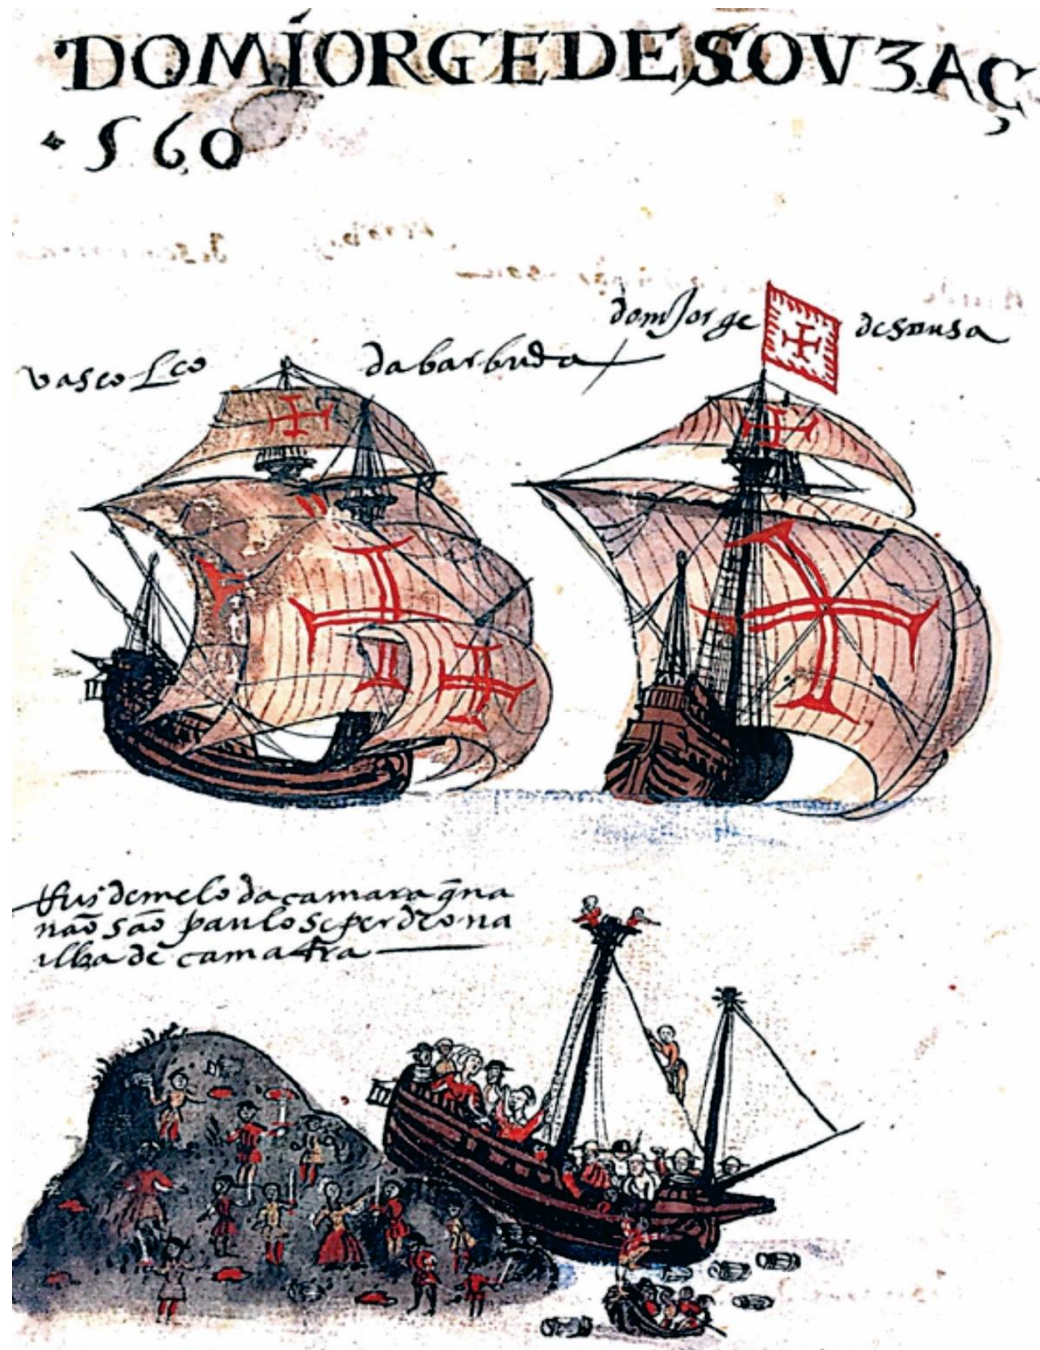 DOM IORGE DE SOVZA Ç
560
vasco Lco da barbuda
dom Jorge de sousa
Rui de melo da camara q̃ na
nao são paulo se perdeo na
ilha de camatra